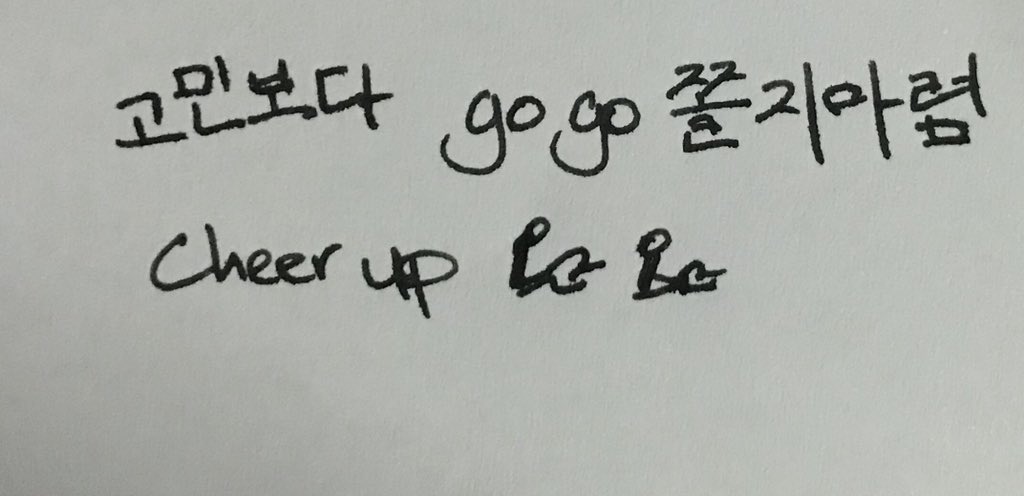 고민보다 go go 쫄지마렴
Cheer up